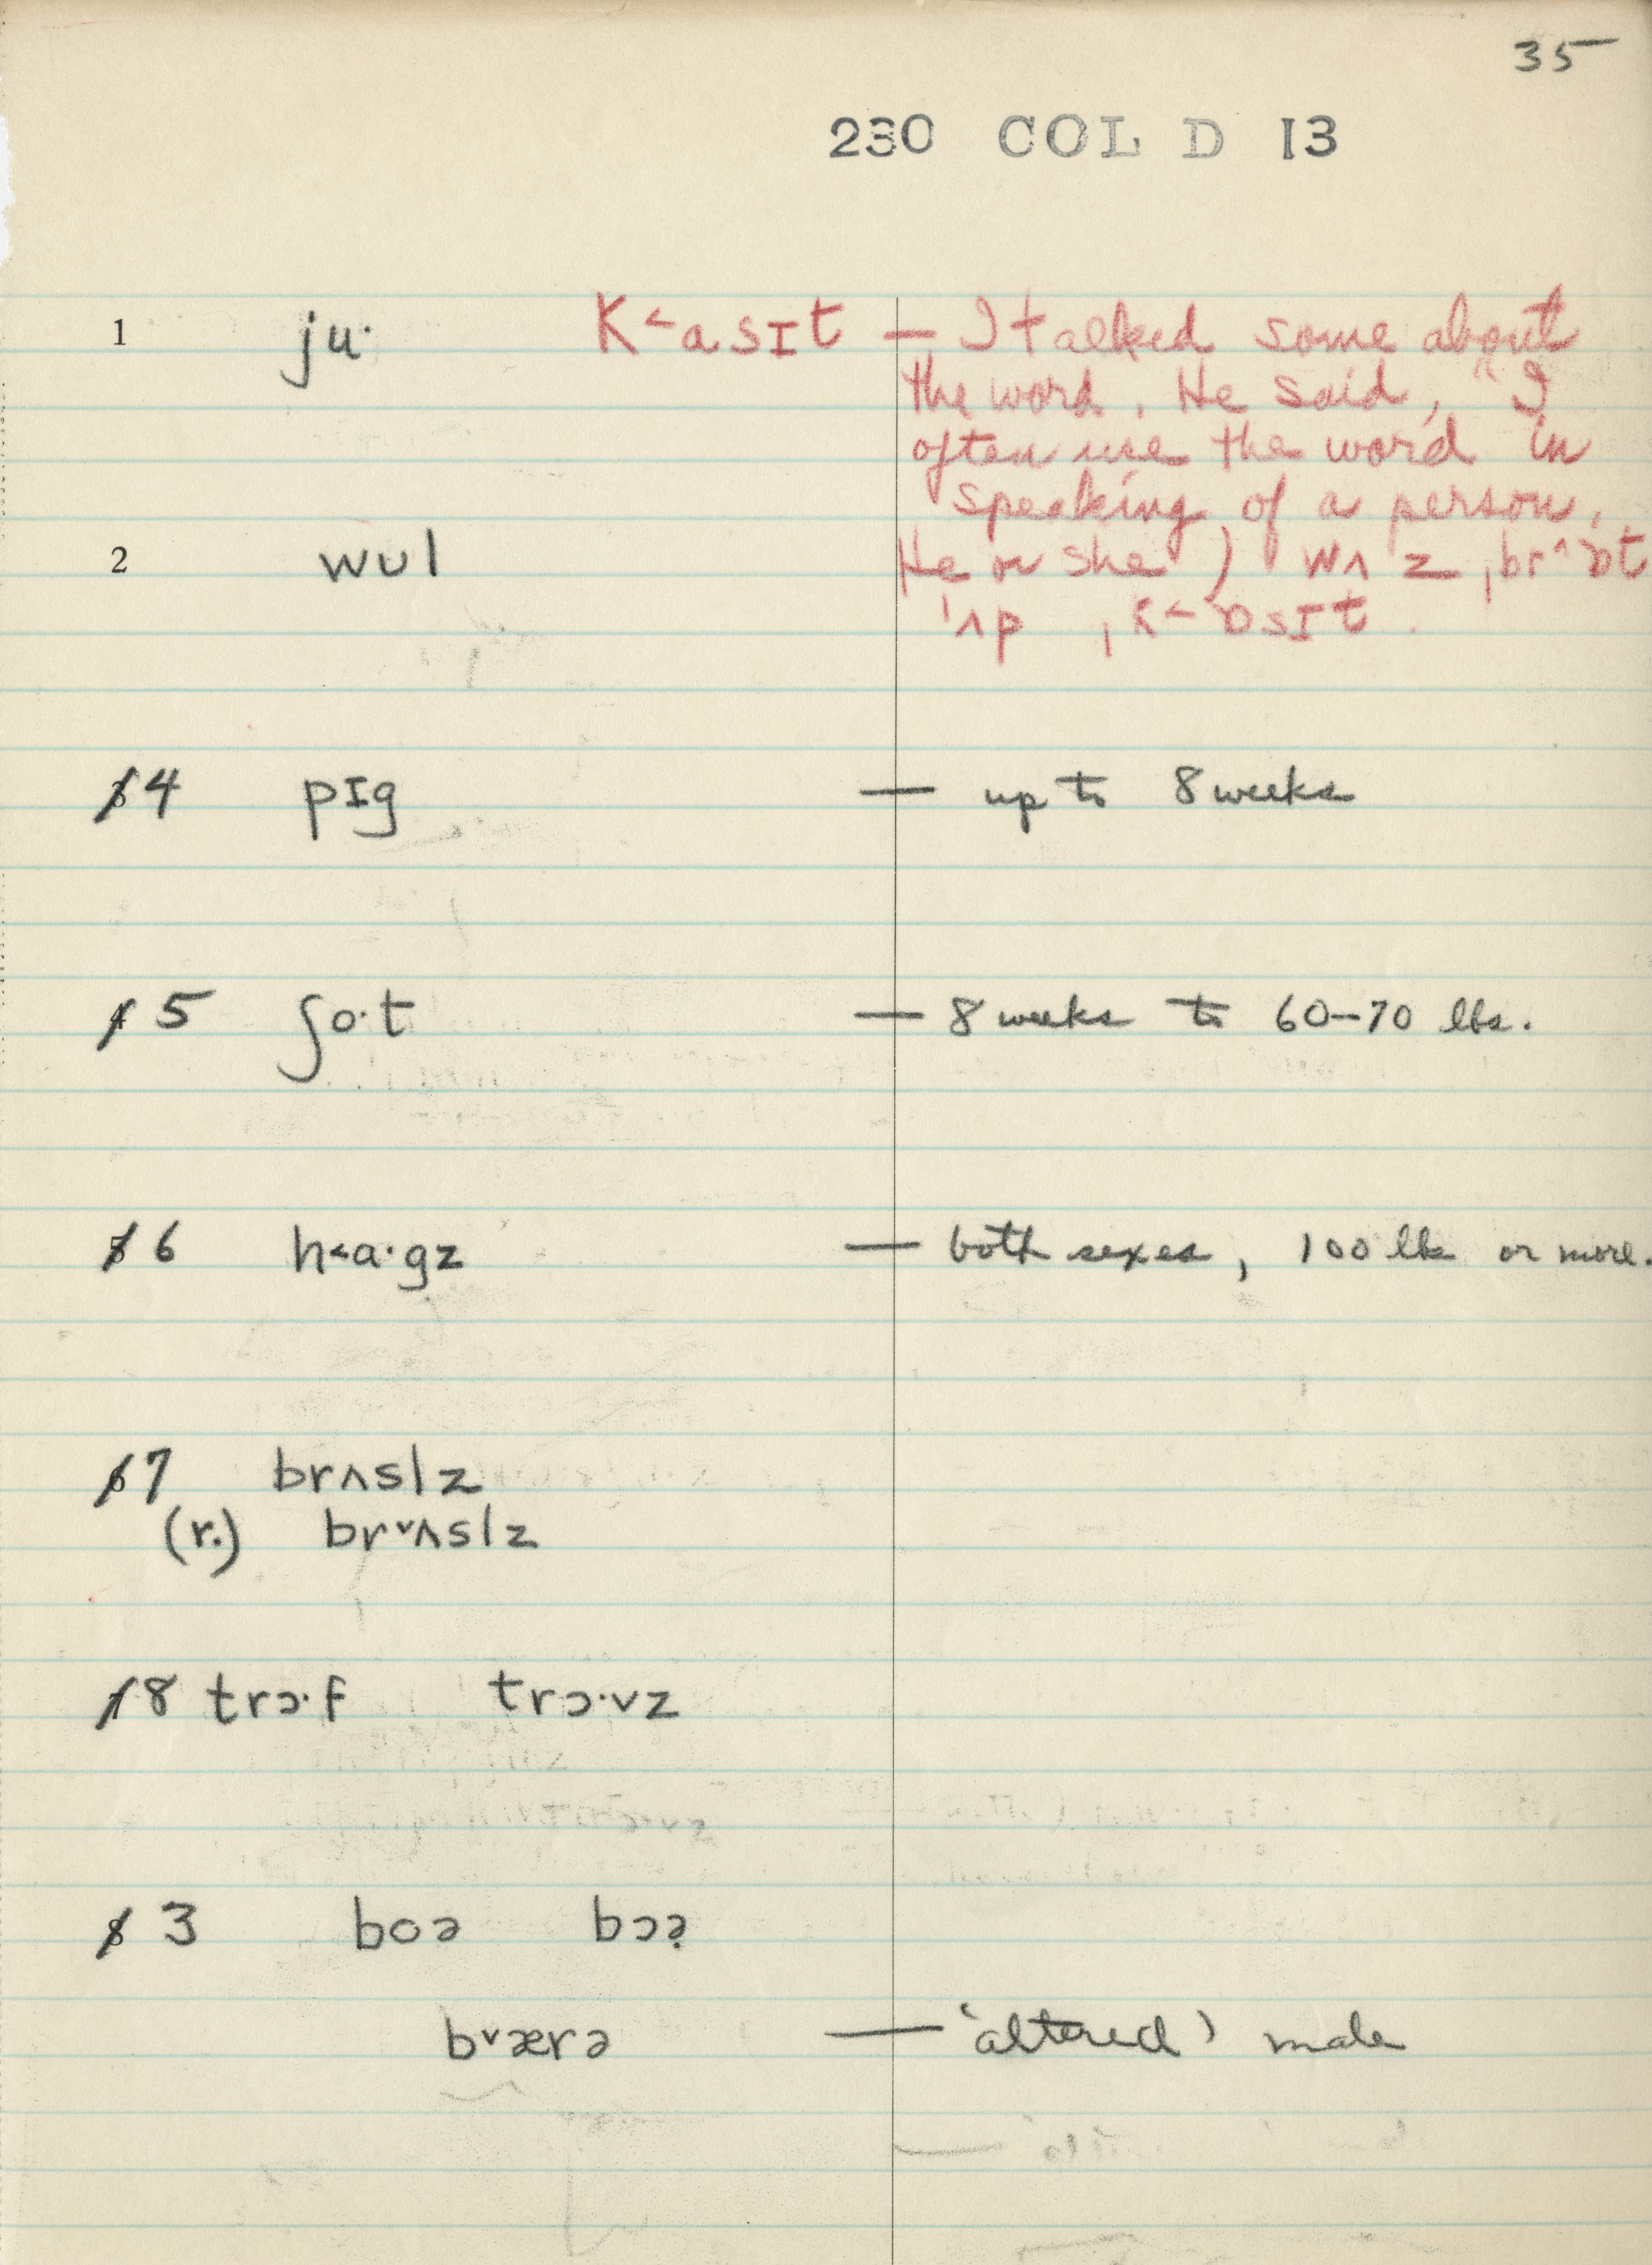 35
230 COL D 13
1 ju· K˂asɪt — I talked some about
the word. He said, "I
often use the word in
speaking of a person,
2 wʊl He or she) wʌz ˌbr^ɒt
ˈʌp ˌK˂ɒsɪt.
3 4 pɪg — up to 8 weeks
4 5 ʃo·t — 8 weeks to 60-70 lbs.
5 6 h˂a·gz — both sexes, 100 lbs or more.
6 7 brʌslz
(r.) br˅ʌslz
7 8 trɔ·f trɔ·vz
8 3 boə bɔə̣
b˅ærə — 'altered' male